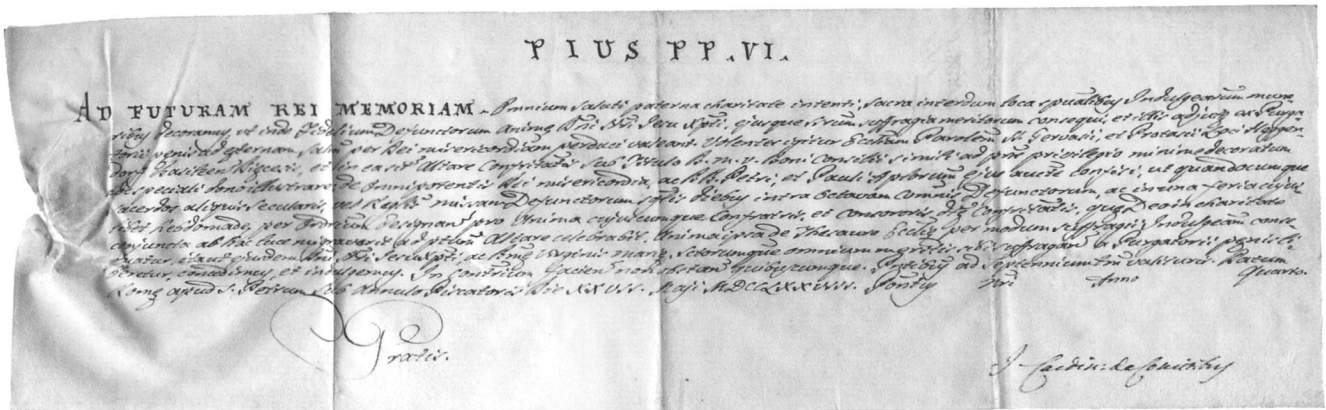 PIUS PP. VI.
AD FUTURAM REI MEMORIAM. Omnium saluti paterna charitate intenti, sacra interdum loca spualibus Indulgearum mune-
ribus decoramus, ut inde Fidelium Defunctorum animæ Dni Nri Jesu Xpti, ejusque suffragia meritorum consequi, et illis adjutæ ex Purga-
torii penis ad eternam salutem per Dei misericordiam perduci valeant. Volentes igitur Ecclam Parolem SS. Gervasii, et Protasii Loci
dorf Basileen Diecesis, et in ea sit Altare Confritatis sub titulo B. M. V. Boni Consilii simili ad pns privilegio minime decoratum
speciali dono illustrare, de omnipotentis Dei misericordia, ac BB. Petri, et Pauli Aplorum ejus auctte confisi, ut quandocumque
Sacerdos aliquis secularis, vel missam Defunctorum diebus intra Octavam Defunctorum, ac in una feria cujus
libet hebdomade, per Ordrium designan pro Anima cujuscumque Confratris, et consororis Confritatis, quæ Deo in charitate
conjuncta ab hac luce migraverit ad Altare celebrabit, Anima ipsa de Thesauro Eccliæ per modum suffragii Indulgeam conse-
quatur, ita ut Dni Nri Jesu Xpti, ac Bmæ Virginis Mariæ, Sctorumque omnium meritis sibi suffragan a Purgatorii penis li-
beretur, concedimus, et indulgemus. In contrium facien non obstan quibuscumque. Pntibus ad Septennium tm valituris. Datum
Romæ apud S. Petrum sub Annulo Piscatoris Die XXVII. Maji MDCCLXXVIII. Pontus Nri Anno Quarto.
Gratis.
Cardin: de Comitibus